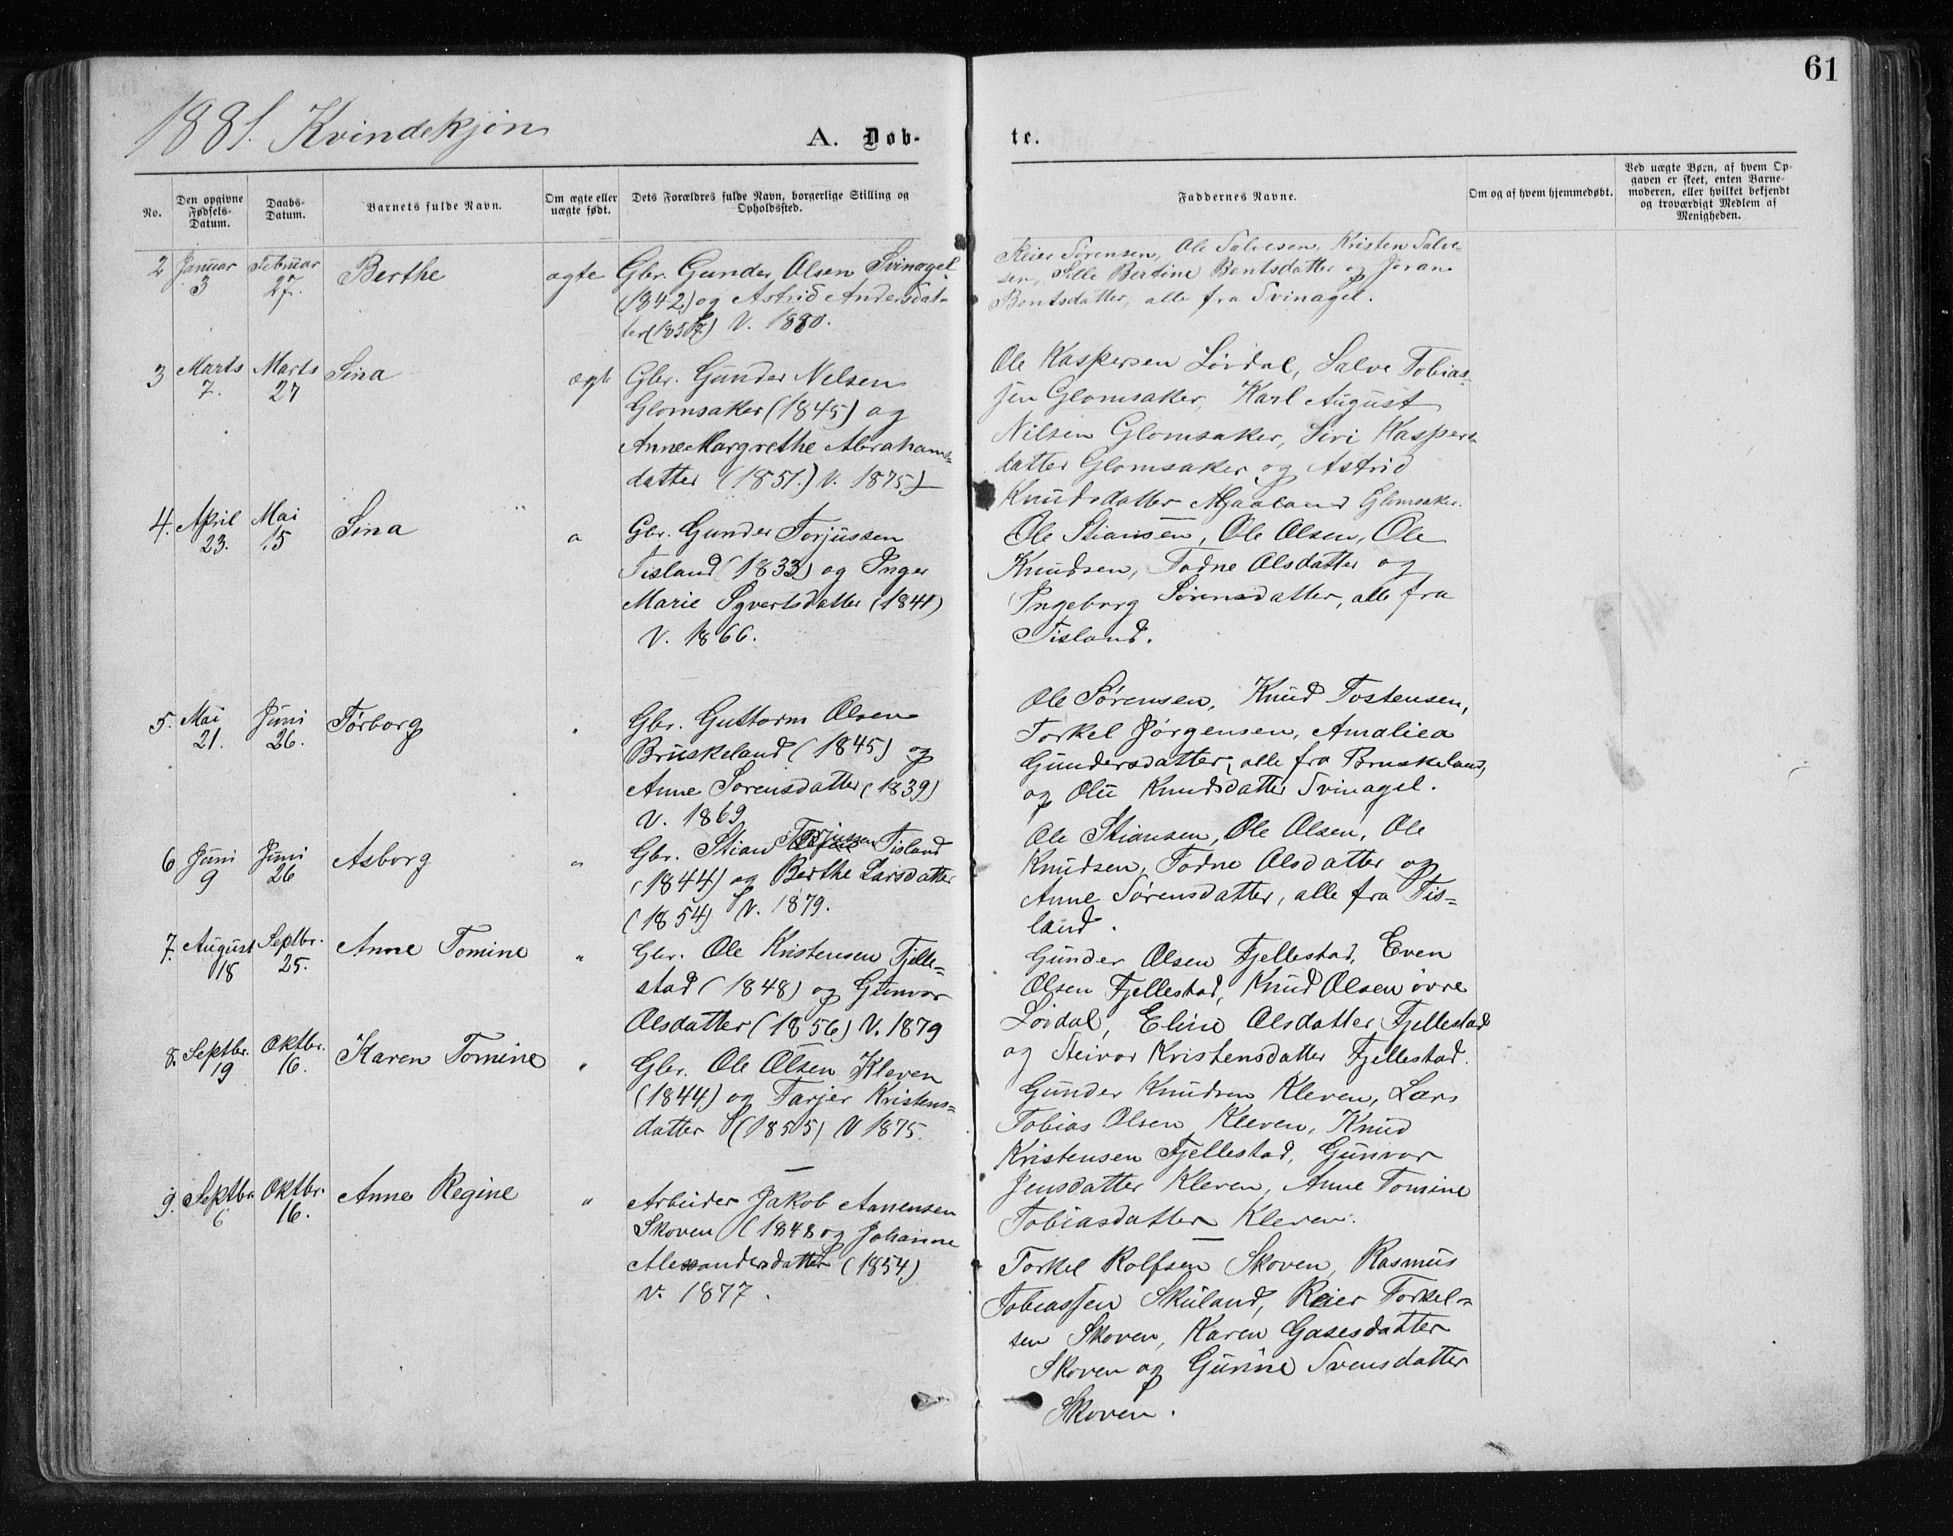 61
1881. Kvindekjøn
A. Døb-
te.
No.
Den opgivne Fødsels-Datum.
Daabs-Datum.
Barnets fulde Navn.
Om ægte eller uægte født.
Dets Forældres fulde Navn, borgerlige Stilling og Opholdssted.
Faddernes Navne.
Om og af hvem hjemmedøbt.
Ved uægte Børn, af hvem Op-
gaven er skeet, enten Barne-
moderen, eller hvilket bekjendt
og troværdigt Medlem af
Menigheden.
2 Januar 3 Februar 27. Berthe ægte
Gbr. Gunder Olsen Svinagel
(1842) og Astrid Andersdat-
ter V. 1880.
Reier Sørensen, Ole Salvesen, Kristen Salve-
sen, Sille Bertine Bentsdatter og Jøran
Bentsdatter, alle fra Svinagel.
3 Marts 7. Marts 27 Sina ægte
Gbr. Gunder Nelsen
Glomsaker (1845) og
Anne Margrethe Abrahams-
datter (1851.) V. 1875)
Ole Kaspersen Løvdal, Salve Tobias-
sen Glomsaker, Karl August
Nilsen Glomsaker, Siri Kaspers-
datter Glomsaker og Astrid
Knudsdatter Glomsaker.
4. April 23. Mai 15 Sina "
Gbr. Gunder Torjussen
Tisland (1833) og Inger
Marie Syvertsdatter (1841)
V. 1866.
Ole Stiansen, Ole Olsen, Ole
Knudsen, Todne Olsdatter og
Ingeborg Sørensdatter, alle fra
Tisland.
5. Mai 21. Juni 26. Tørborg "
Gbr. Guttorm Olsen
Bruskeland (1845) og
Anne Sørensdatter (1839)
V. 1869
Ole Sørensen, Knud Tostensen,
Torkel Jørgensen, Amaliea
Gundersdatter, alle fra Bruskeland,
og Olu Knudsdatter Svinagel.
6 Juni 9 Juni 26 Asborg "
Gbr. Stian Torjussen Tisland
(1844) og Berthe Larsdatter
(1854) V. 1879.
Ole Stiansen, Ole Olsen, Ole
Knudsen, Todne Olsdatter og
Anne Sørensdatter, alle fra Tis-
land.
7. August 18 Septbr. 25. Anne Tomine "
Gbr. Ole Kristensen Fjelle-
stad (1848) og Gunvor
Olsdatter (1856) V. 1879
Gunder Olsen Fjellestad, Even
Olsen Fjellestad, Knud Olsen øvre
Løvdal, Eline Olsdatter Fjellestad
og Steivor Kristensdatter Fjellestad.
8. Septbr. 19 Oktbr. 16. Karen Tomine "
Gbr. Ole Olsen Kleven
(1844) og Tarjer Kristens-
datter (1855) V 1875.
Gunder Knudsen Kleven, Lars
Tobias Olsen Kleven, Knud
Kristensen Fjellestad, Gunvor
Jensdatter Kleven, Anne Tomine
Tobiasdatter Kleven.
9. Septbr 6 Oktbr. 16. Anne Regine "
Arbeider Jakob Aanensen
Skoven (1848 og Johanne
Alexandersdatter (1854)
V. 1877.
Torkel Rolfsen Skoven, Rasmus
Tobiassen Skuland, Reier Torkel-
sen Skoven, Karen Gasesdatter
Skoven og Gurine Svensdatter
Skoven.